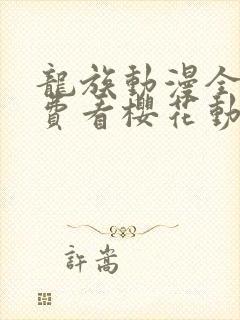 龍族動漫全
費看櫻花動
許嵩